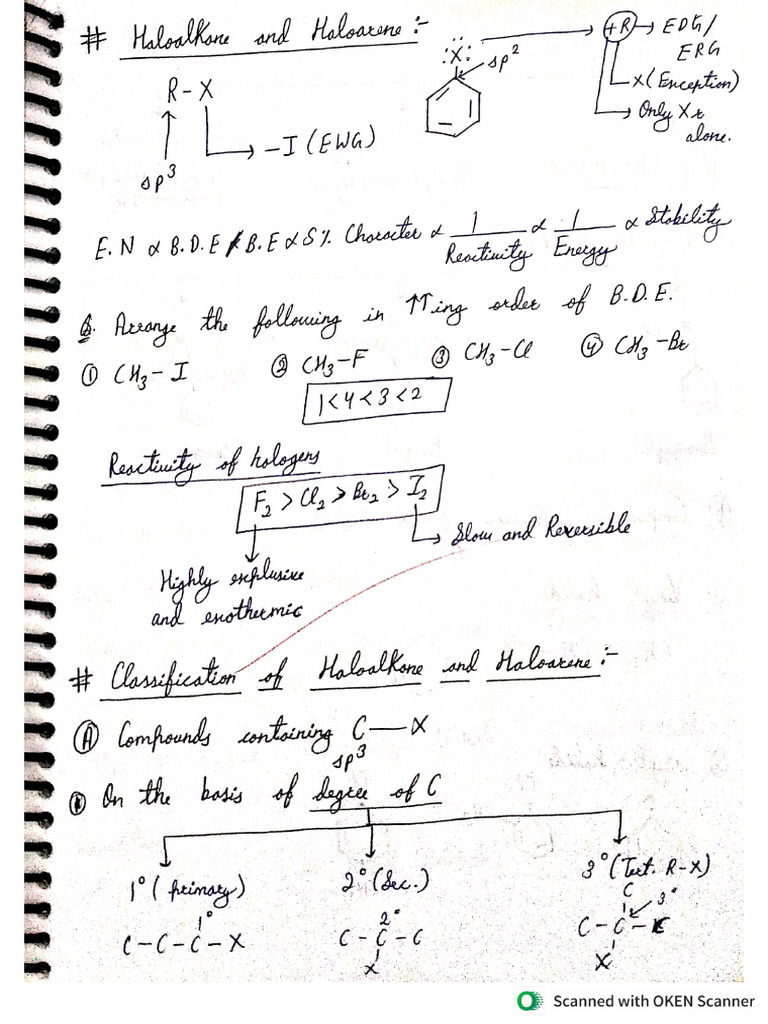 # Haloalkane and Haloarene :-
R - X
sp³
-I (EWG)
:Ẍ:
sp²
+R → EDG/
ERG
X (Exception)
Only X
alone.
E.N ∝ B.D.E / B.E ∝ S% Character ∝ 1/Reactivity ∝ 1/Energy ∝ Stability
Q. Arrange the following in ↑↑ing order of B.D.E.
① CH₃-I ② CH₃-F ③ CH₃-Cl ④ CH₃-Br
1<4<3<2
Reactivity of halogens
F₂ > Cl₂ > Br₂ > I₂
Slow and Reversible
Highly explusive
and exothermic
# Classification of Haloalkane and Haloarene :-
Ⓐ Compounds containing C—X
sp³
① On the basis of degree of C
1° (primary) 2° (Sec.) 3° (Tert. R-X)
1° 2° C 3°
C-C-C-X C-C-C C-C-C
X X
Scanned with OKEN Scanner